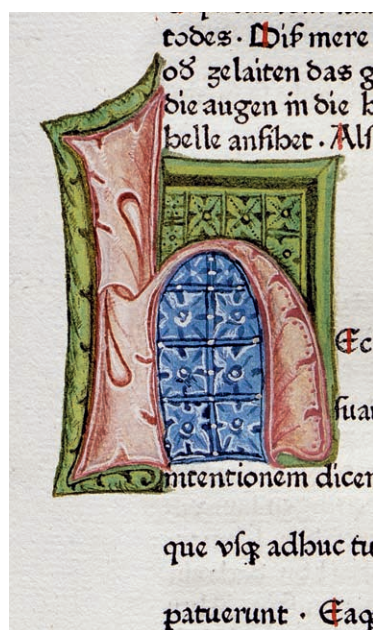 todes · Diß mere
oď zelaiten das g
die augen in die h
helle ansihet · Als
h
Ec
suar
intentionem dicen
que vsqꝫ adhuc tu
patuerunt · Eaq